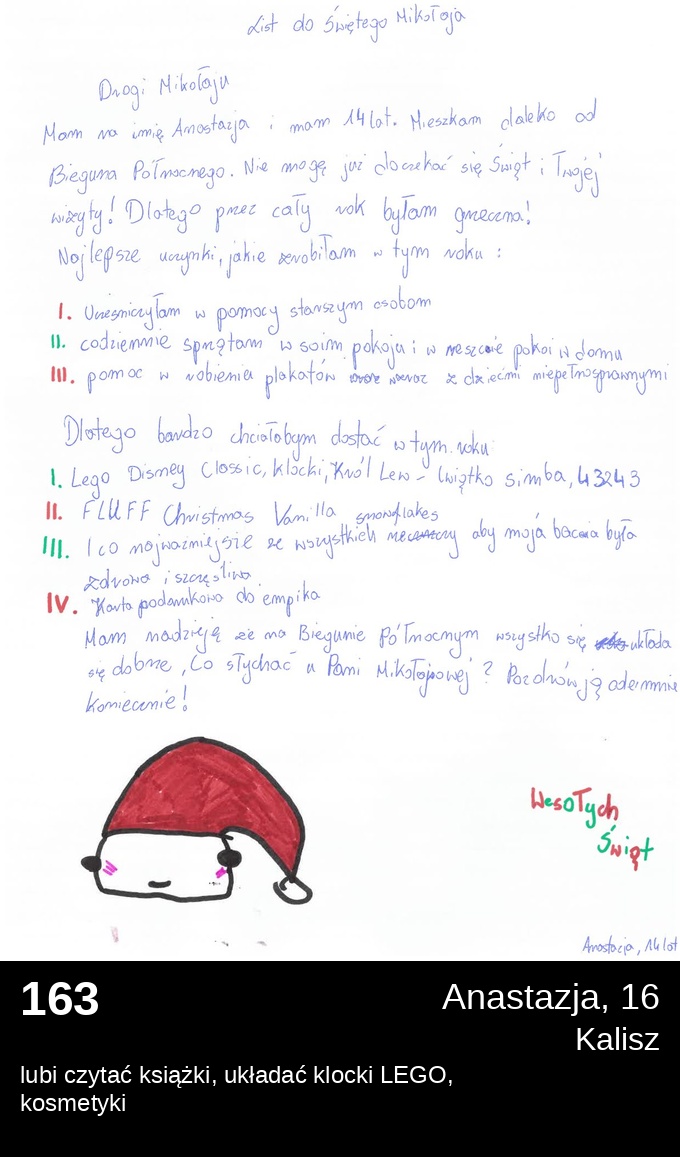 List do Świętego Mikołaja
Drogi Mikołaju
Mam na imię Anastazja i mam 14 lat. Mieszkam daleko od
Bieguna Północnego. Nie mogę już doczekać się Świąt i Twojej
wizyty! Dlatego przez cały rok byłam grzeczna!
Najlepsze uczynki, jakie zrobiłam w tym roku :
I. Uczesniczyłam w pomocy starszym osobom
II. codziennie sprzątam w soim pokoju i w reszcie pokoi w domu
III. pomoc w robieniu plakatów wraz z dziećmi niepełnosprawnymi
Dlatego bardzo chciałabym dostać w tym roku:
I. Lego Disney Classic, klocki, Król Lew - lwiątko simba, 43243
II. FLUFF Christmas Vanilla snowflakes
III. I co najważniejsze ze wszystkich rzeczy aby moja bacia była
zdrowa i szczęśliwa.
IV. Karta podarunkowa do empika
Mam nadzieję że na Biegunie Północnym wszystko się układa
się dobrze, Co słychać u Pani Mikołajowej? Pozdrów ją odemnie
koniecznie!
Wesołych
Świąt
Anastazja, 14 lat
163
Anastazja, 16
Kalisz
lubi czytać książki, układać klocki LEGO,
kosmetyki